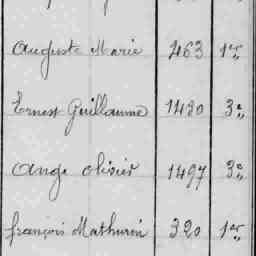 Auguste Marie 463 1er
Ernest Guillaume 1420 3e
Ange Olivier 1497 3e
François Mathurin 320 1er